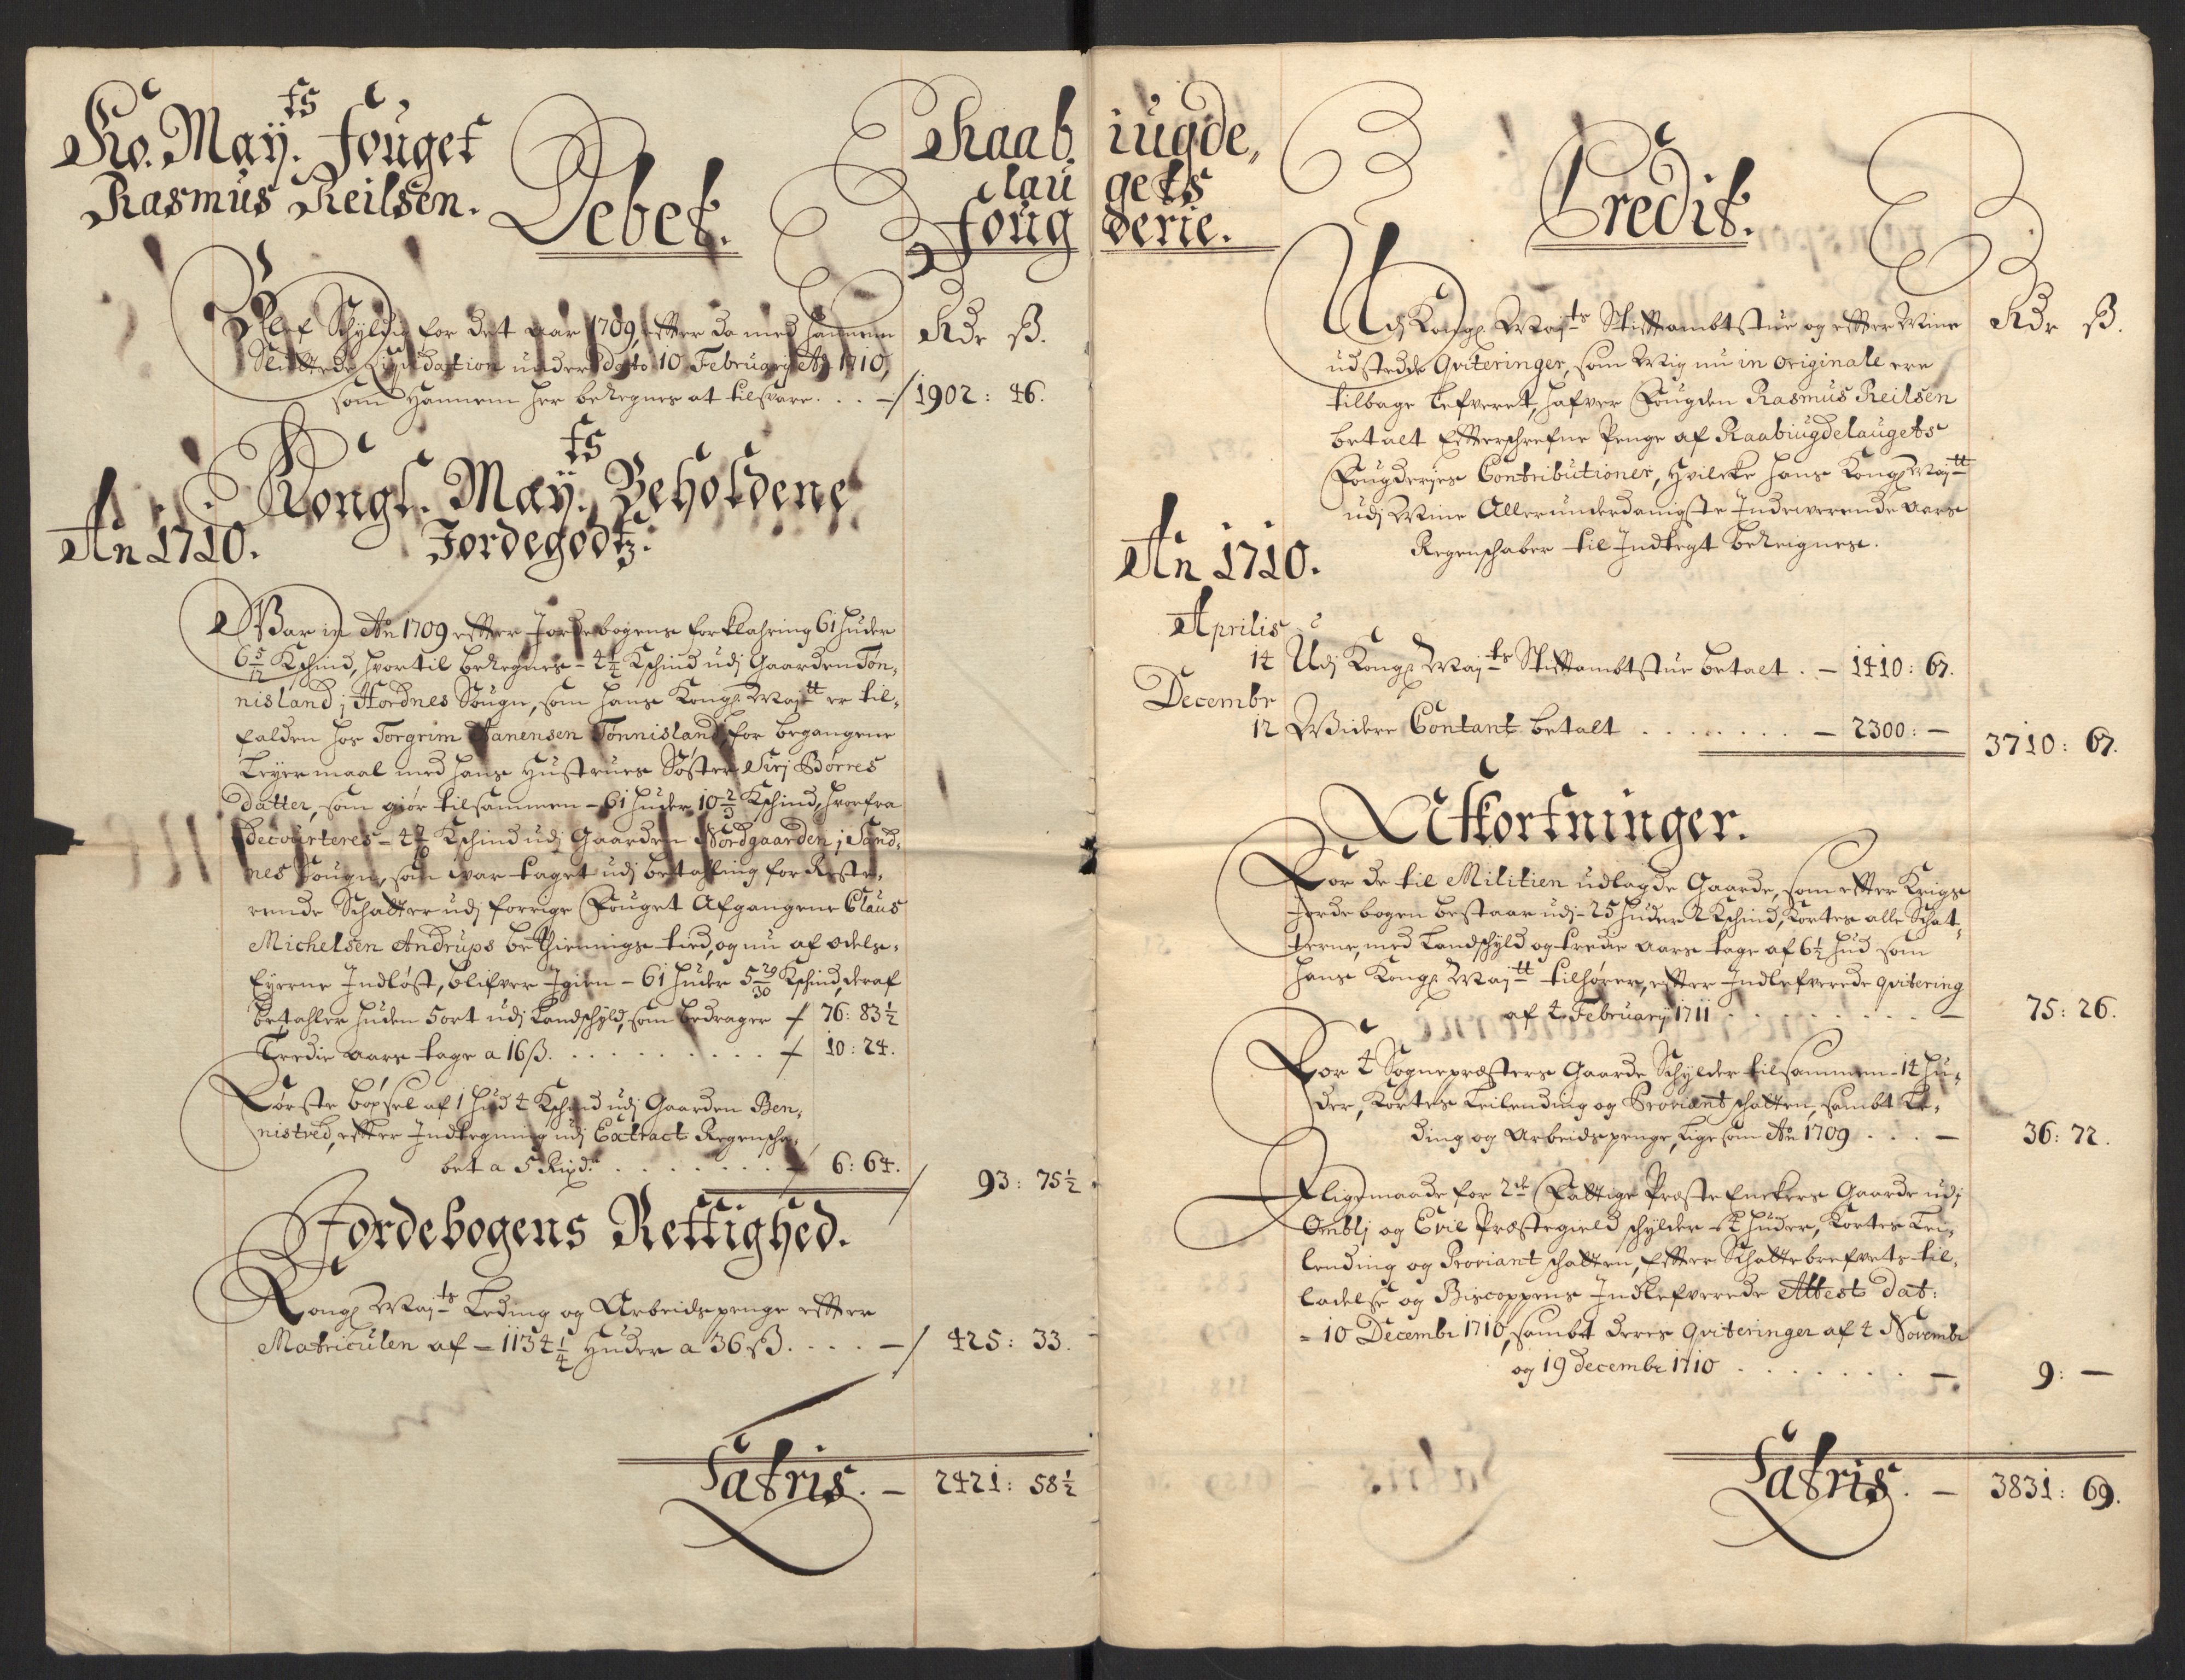 Ko. May.ts Fouget
Rasmus Reilsen.
Debet.
Raab
lau
Foug
Blef Schyldig for det aar 1709, efter da med hannem
Sluttede Liquidation under dato 10 Februarij Ao 1710,
som Hannem her beregnes at tilsvare . . . —/ 1902: 46.
Rdr ß.
Kongl. May.ts Beholdene
Jordegodtz.
An 1710.
War in Ao 1709 efter Jordebogens forklahring 61 huder
6 5/12 Kschind, hvortil beregnes - 4 1/4 Kschind udj Gaarden Tøn,
nisland j Hordnes Sougn, som hans Kongl. Maÿtt er til,
falden hos Torgrim Hanensen Tønnisland, for begangene
Leyermaal med hans Hustrues Søster Sirj Børres
datter, som giør tilsammen - 61 huder 10 2/3 Kschind, hvorfra
decourteres - 4 Kschind udj Gaarden Nordgaarden j Sand,
nes Sougn, som war taget udj betahling for Reste,
rende Schatter udj forrige Fouget Afgangene Claus
Michelsen Andrups bethienings tied, og nu af odels,
Eyerne Indløst, blifver Igien - 61 huder 5 29/30 Kschind, deraf
betahler huden 5 ort udj Landschyld, som bedrager / 76: 83 1/2
Tredie aars tage a 16 ß. . . . . . . . . . / 10: 24.
Første bøxsel af 1 hud 4 Kschind udj Gaarden Ben,
nistved, efter Indtegning udj Extract Regenscha,
bet a 5 Rixdr . . . . . . . — 6: 64.
/ 93: 75 1/2
Jordebogens Rettighed.
Kongl. Maÿts Leding og Arbeidspenge efter
Matriculen af - 1134 1/4 Huder a 36 ß. . . . —/ 425: 33.
Latris. — 2421: 58 1/2
iugde,
gets
derie.
Credit.
Rdr ß.
Udj Kongl. Maÿts Stiftambtstue og efter Mine
udstedde Qviteringer, som Mig nu in originale ere
tilbage lefveret, hafver Fougden Rasmus Reilsen
betalt Efterschrefne Penge af Raabiugdelaugets
Fougderies Contributioner, Hvilcke hans Kongl. Maÿtt
udj Mine Allerunderdanigste Indewerende aars
Regenschaber til Indtegt beregnes.
An 1710.
Aprilis
14 Udj Kongl. Maÿts Stiftambtstue betalt . — 1410: 67.
Decembr
12 Widere Contant betalt . . . . . . . . — 2300: —
3710: 67.
Afkortninger.
For de til Militien udlagde Gaarde, som efter Krigs
Jordebogen bestaar udj - 25 huder 2 Kschind, Kortes alle Schat,
terne, med Landschyld og tredie aars tage af 6 1/2 hud som
hans Kongl. Maÿtt tilhører, efter Indlefverede qvitering
af 4 Februarij 1711 . . . . . . . . . — 75: 26.
For 4 Sognepræsters Gaarde Schylder tilsammen - 14 hu,
der, Kortes Leilending og Proviant schatten, sambt Le,
ding og Arbeidspenge, lige som Ao 1709 . . . — 36: 72.
Ligemaade for 2de Fattige Præste Enckers Gaarde udj
Omblj og Evie Præstegield schylder - 4 huder, Kortes Lei,
lending og Proviant schatten, Efter Schattebrefvets til,
ladelse og Biscoppens Indlefverede Attest dat:
- 10 Decembr 1710, sambt deres qviteringer af 4 Novembr
og 19 decembr 1710 . . . . . . . — 9: —
Latris. — 3831: 69.